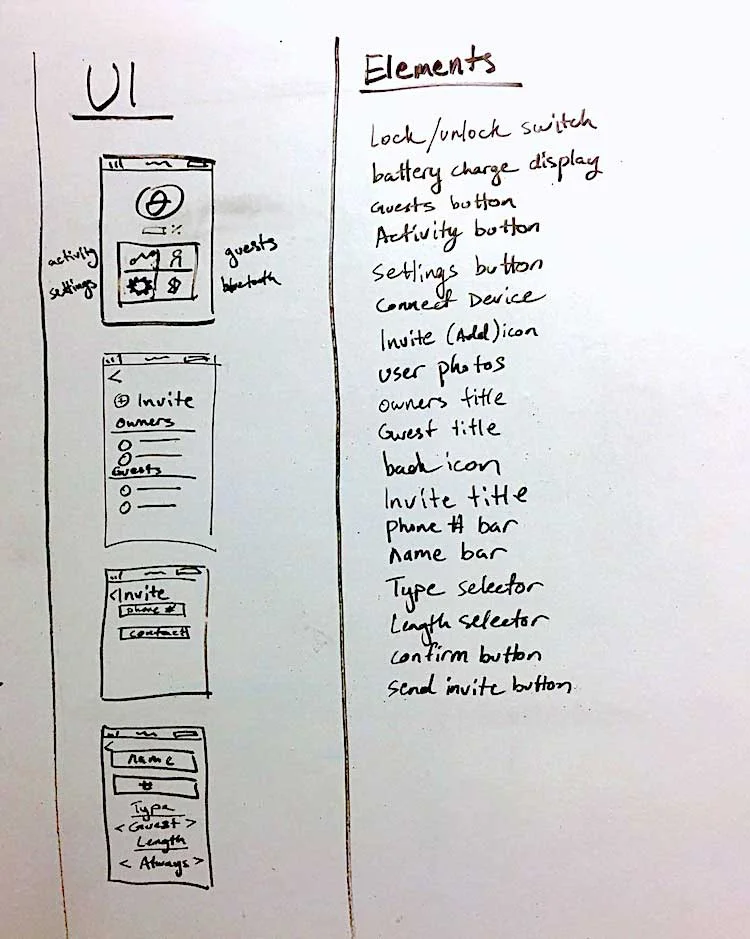 UI
%
activity
guests
settings
bluetooth
<
⊕ Invite
Owners
Guests
<Invite
phone #
contact
<
name
#
Type
< Guest >
Length
< Always >
Elements
Lock/unlock switch
battery charge display
Guests button
Activity button
Settings button
Connect Device
Invite (Add) icon
user photos
owners title
Guest title
back icon
Invite title
phone # bar
name bar
Type selector
Length selector
confirm button
send invite button